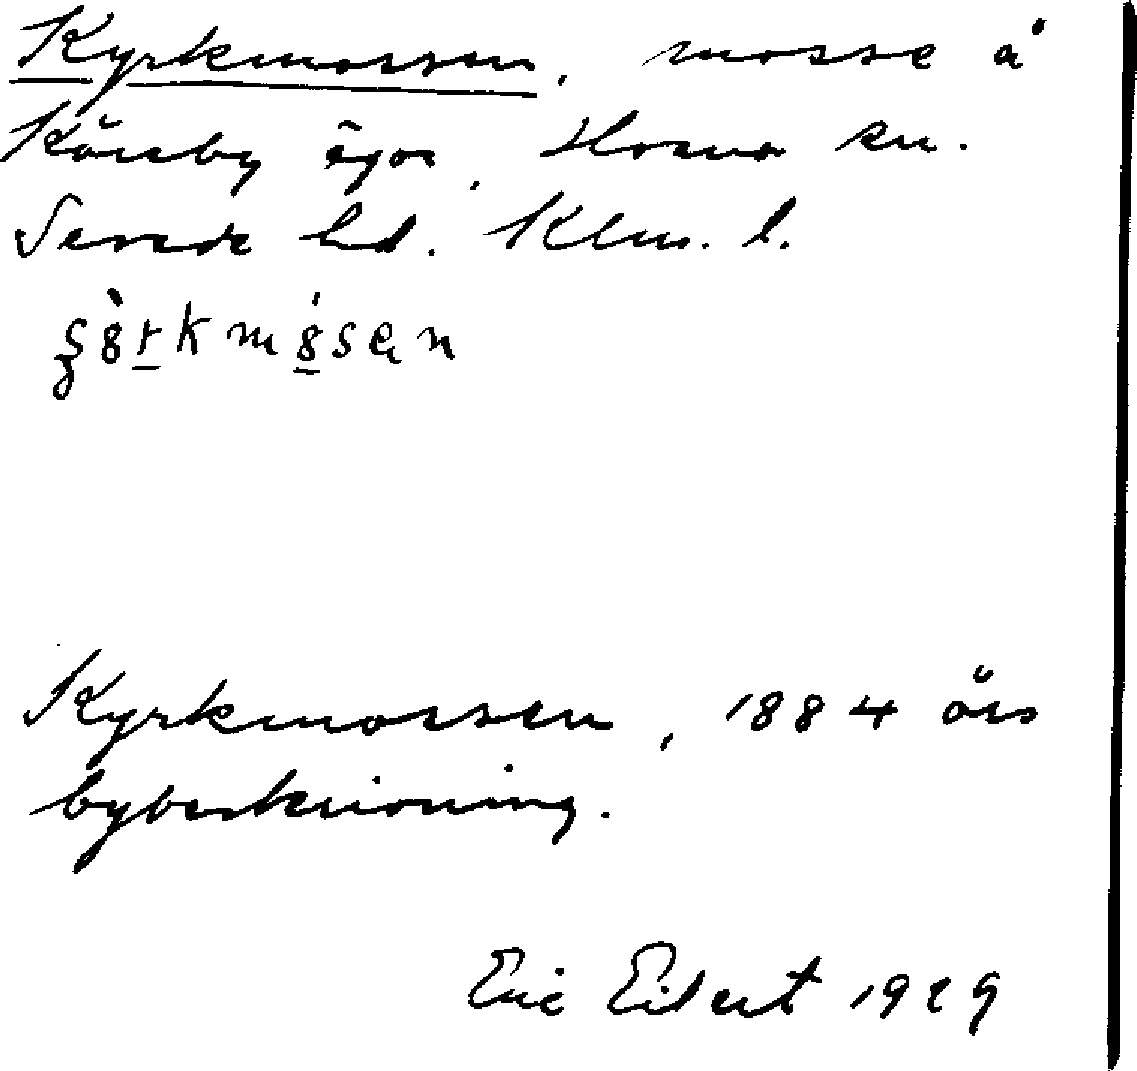 Kyrkmossen, mosse å
Kåreby ägor, Horn sn.
Sevede hd. Klm. l.
Kyrkmossen, 1884 års
bybeskrivning.
Eric Eilert 1929